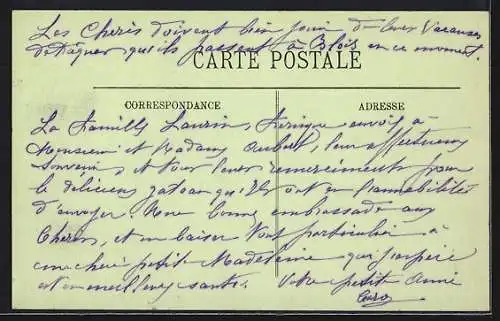 Les Cheris doivent bien jouir de leur Vacances
de Pâques qu'ils passent à Blois en ce moment.
CARTE POSTALE
CORRESPONDANCE
ADRESSE
La famille envoie à
Monsieur et Madame Aubert, leur affectueux
Souvenir, et tous leurs remerciments pour
le délicieux gateau qu'ils ont eu l'amabilité
d'envoyer. Une bonne embrassade aux
Cheris, et un baiser tout particulier à
ma chere petite Madeleine que j'espère
est en meilleure santé. Votre petite amie